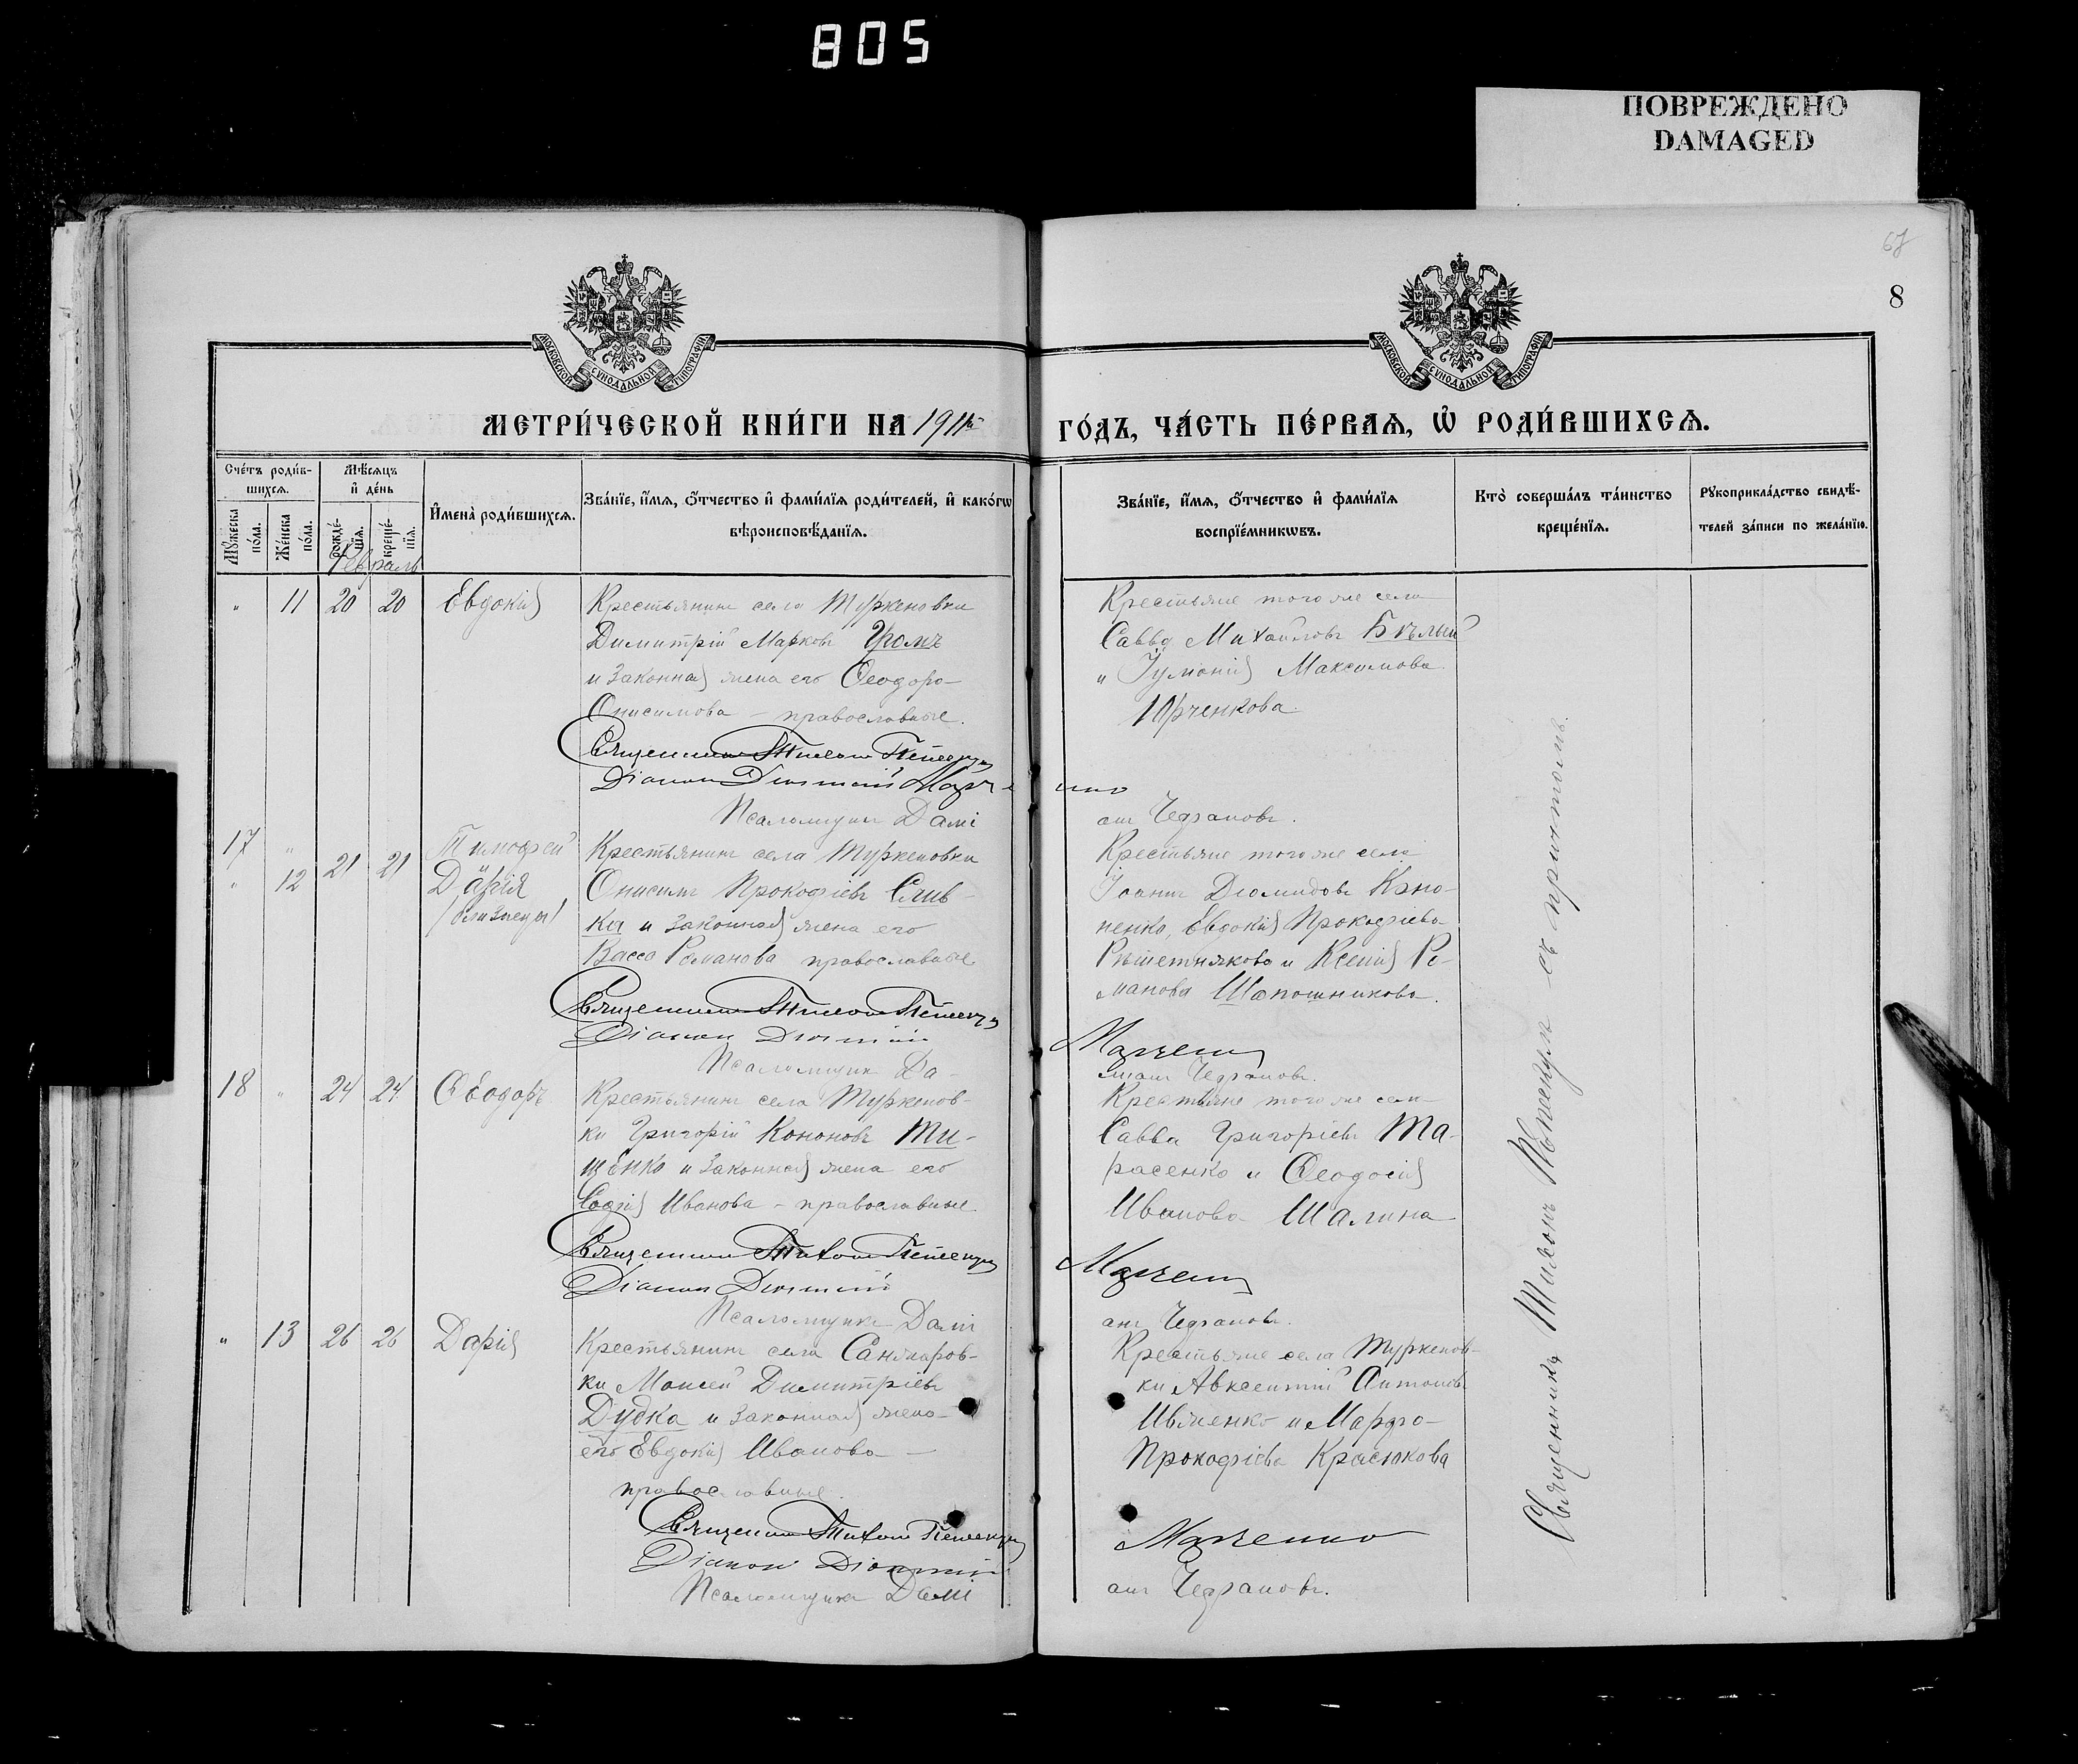 805
ПОВРЕЖДЕНО
DAMAGED
67
8
МОСКОВСКОЙ СѴНОДАЛЬНОЙ ТИПОГРАФІИ
МОСКОВСКОЙ СѴНОДАЛЬНОЙ ТИПОГРАФІИ
МЕТРИ́ЧЕСКОЙ КНИ́ГИ НА 1911й ГО́ДЪ, ЧА́СТЬ ПЕ́РВАЯ, Ѡ҆ РОДИ́ВШИХСЯ.
Сче́тъ роди́в-
шихся.
Мѣ́сяцъ
и҆ де́нь
И҆мена̀ роди́вшихся.
Зва́нїе, и҆́мя, ѻ҆́тчество и҆ фами́лїя роди́телей, и҆ како́гѡ
вѣроисповѣ́данїя.
Зва́нїе, и҆́мя, ѻ҆́тчество и҆ фами́лїя
воспрїе́мникѡвъ.
Кто̀ соверша́лъ та́инство
креще́нїя.
Рꙋкоприкла́дство свидѣ́-
телей за́писи по жела́нїю.
Мꙋ́жеска
по́ла.
Же́нска
по́ла.
рожде́-
нїя.
креще́-
нїя.
Февраль
" 11 20 20 Евдокія
Крестьянинъ села Туркеновки
Димитрій Марковъ Громъ
и законная жена его Ѳеодора
Онисимова – православные.
Священникъ Тихонъ Пѣшенцы
Діаконъ Діомидій Марченко
Псаломщикъ Даміанъ Чефрановъ.
Крестьяне того же села
Савва Михайловъ Бѣлый
и Іуліанія Максимова
Юрченкова.
17 " 21 21 Тимофей
" 12 Дарія
/близнецы/
Крестьянинъ села Туркеновки
Онисимъ Прокофіевъ Слив-
ка и законная жена его
Васса Романова православные
Священникъ Тихонъ
Діаконъ
Марченко
Псаломщикъ Да-
міанъ Чефрановъ.
Крестьяне того же села
Іоаннъ Діомидовъ Коно-
ненко, Евдокія Прокофіева
Рѣшетнякова и Ксенія Ро-
манова Шапошникова.
18 " 24 24 Ѳеодоръ
Крестьянинъ села Туркенов-
ки Григорій Кононовъ Ти-
щенко и законная жена его
Софія Иванова – православные
Священникъ Тихонъ
Діаконъ
Марченко
Псаломщикъ Даміанъ Чефрановъ.
Крестьяне того же села
Савва Григоріевъ Та-
расенко и Ѳеодосія
Иванова Шалина
" 13 26 26 Дарія
Крестьянинъ села Санжаров-
ки Моисей Димитріевъ
Дудка и законная жена
его Евдокія Иванова –
православные.
Священникъ Тихонъ
Діаконъ
Марченко
Псаломщикъ Даміанъ Чефрановъ.
Крестьяне села Туркенов-
ки Авксентій Антоновъ
Ивженко и Марфа
Прокофіева Красюкова
Священникъ Тихонъ съ причтомъ.